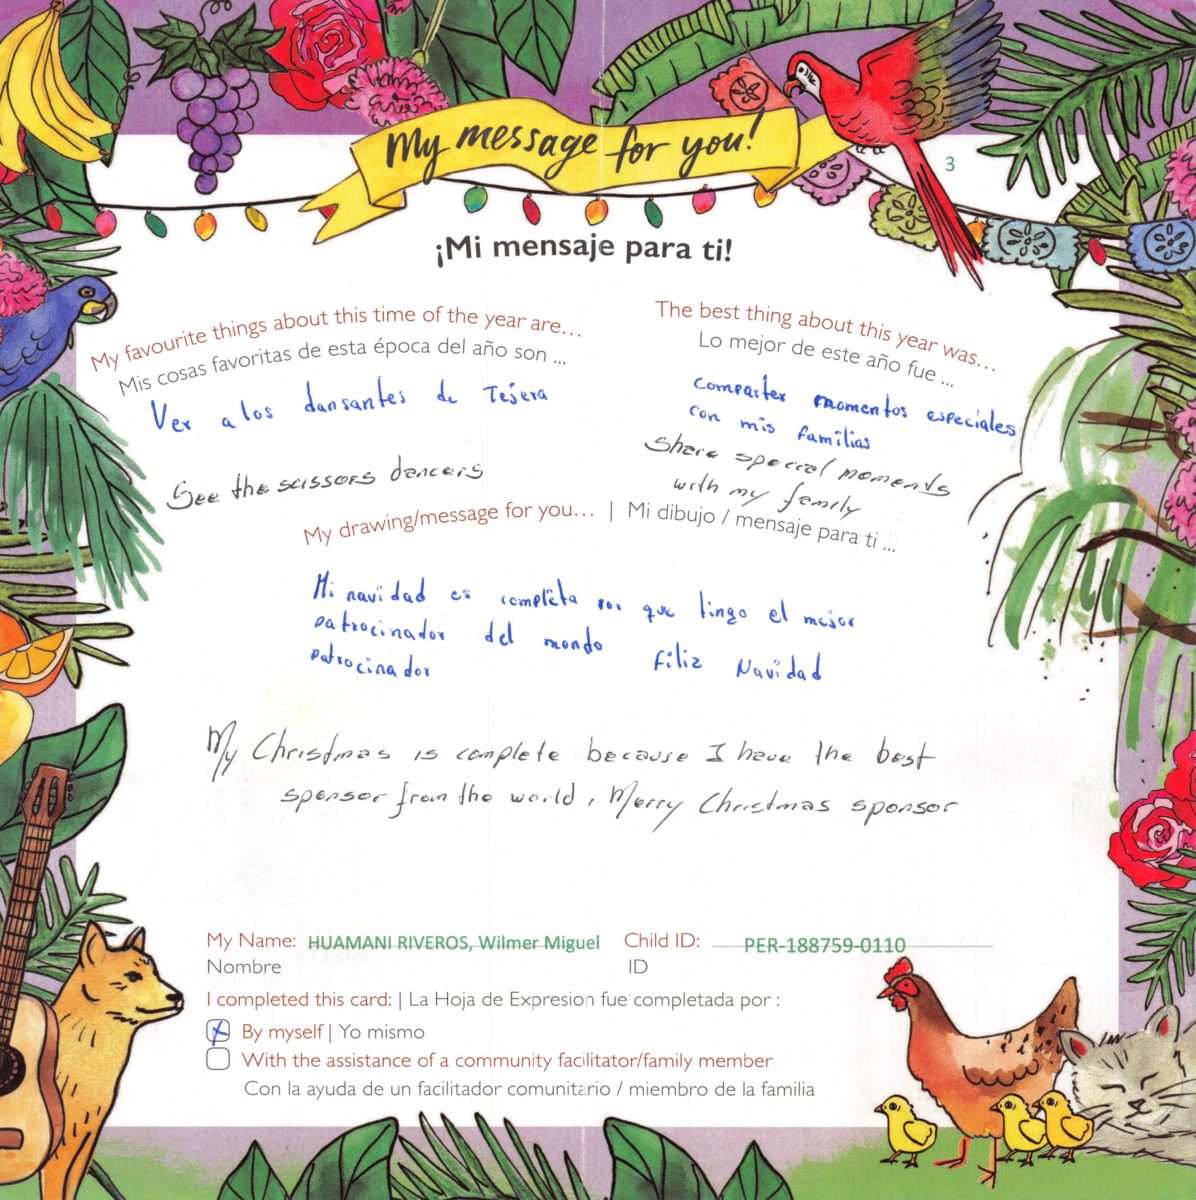 My message for you!
3
¡Mi mensaje para ti!
My favourite things about this time of the year are...
Mis cosas favoritas de esta época del año son ...
Ver a los dansantes de Tejera
See the scissors dancers
The best thing about this year was...
Lo mejor de este año fue ...
compartir momentos especiales
con mis familias
Share special moments
with my family
My drawing/message for you... | Mi dibujo / mensaje para ti ...
Mi navidad es completa por que tingo el mejor
patrocinador del mondo filiz Navidad
patrocinador
My Christmas is complete because I have the best
sponsor from the world, Merry Christmas sponsor
My Name: HUAMANI RIVEROS, Wilmer Miguel Child ID: PER-188759-0110
Nombre ID
I completed this card: | La Hoja de Expresion fue completada por :
By myself | Yo mismo
With the assistance of a community facilitator/family member
Con la ayuda de un facilitador comunitario / miembro de la familia